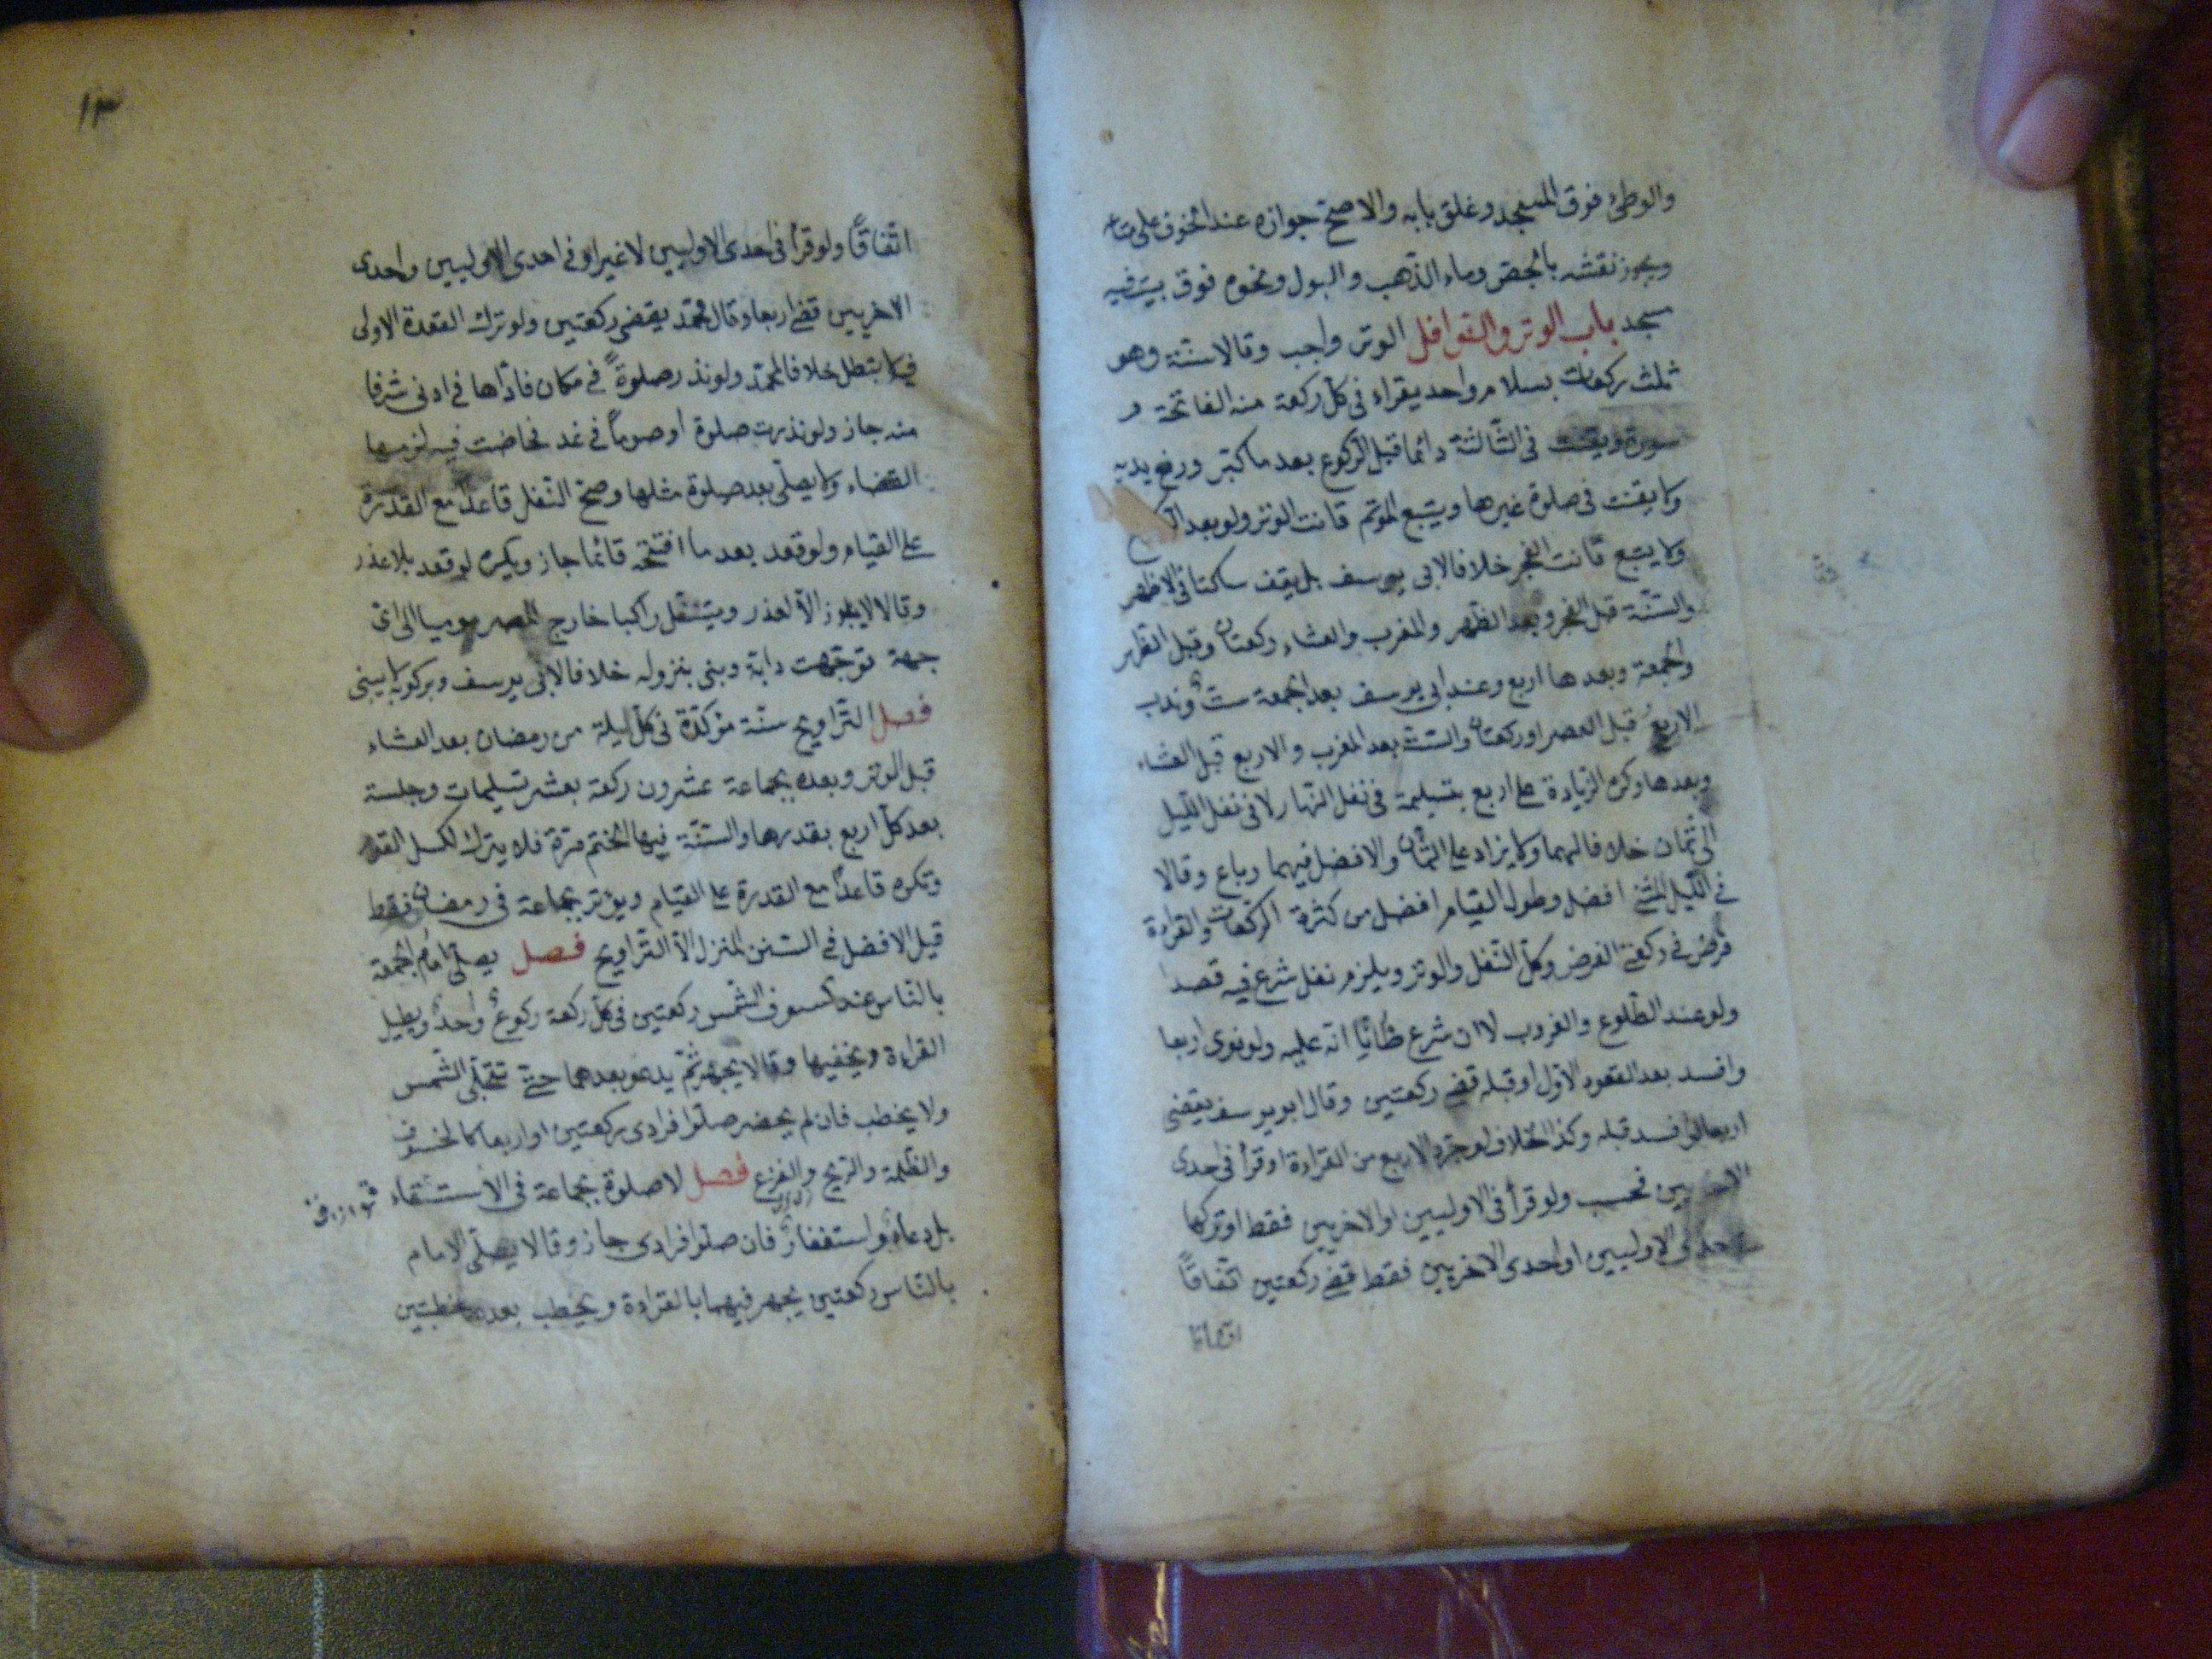 والوطئ فوق المسجد وغلق بابه والاصح جوازه عند الخوف على متاعه
ويجوز نقشه بالجص وماء الذهب والبول ونحوه فوق بيت فيه
مسجد باب الوتر والنوافل الوتر واجب وقالا سنة وهو
ثلث ركعات بسلام واحد يقراء فى كل ركعة منه الفاتحة و
سورة ويقنت فى الثالثة دائما قبل الركوع بعد ما كبر ورفع يديه
ولا يقنت فى صلوة غيرها ويتبع المؤتم قانت الوتر ولو بعد
ولا يتبع قانت الفجر خلافا لابى يوسف بل يقف ساكتا فى الاظهر
والسنة قبل الفجر وبعد الظهر والمغرب والعشاء ركعتان وقبل الظهر
والجمعة وبعدها اربع وعند ابى يوسف بعد الجمعة ست وندب
الاربع قبل العصر او ركعتان والست بعد المغرب والاربع قبل العشاء
وبعدها وكره الزيادة على اربع بتسليمة فى نفل النهار لا فى نفل الليل
الى ثمان خلافا لهما ولا يزاد على الثمان والافضل فيهما رباع وقالا
فى الليل المثنى افضل وطول القيام افضل من كثرة الركعات والقراءة
فرض فى ركعتى الفرض وكل النفل والوتر ويلزم نفل شرع فيه قصدا
ولو عند الطلوع والغروب لا ان شرع ظانا انه عليه ولو نوى اربعا
وافسد بعد القعود الاول او قبله قضى ركعتين وقال ابو يوسف يقضى
اربعا لو افسد قبله وكذا الخلاف لو جرد الاربع من القراءة او قرأ فى احدى
الاخريين فحسب ولو قرأ فى الاوليين او الاخريين فقط او تركها
احدى الاوليين او احدى الاخريين فقط قضى ركعتين اتفاقاً
اتفاقا
١٣
اتفاقاً ولو قرأ فى احدى الاوليين لا غير او فى احدى الاوليين واحدى
الاخريين قضى اربعا وقال محمد يقضى ركعتين ولو ترك القعدة الاولى
فيه لا تبطل خلافا لمحمد ولو نذر صلوةً فى مكان فاداها فى ادنى شرفا
منه جاز ولو نذرت صلوة او صوماً فى غد فحاضت فيه لزمها
القضاء ولا يصلى بعد صلوة مثلها وصح النفل قاعداً مع القدرة
على القيام ولو قعد بعد ما افتتحه قائما جاز ويكره لو قعد بلا عذر
وقالا لا يجوز الا لعذر ويتنفل راكبا خارج المصر موميا الى اى
جهة توجهت دابة وبنى بنزوله خلافا لابى يوسف وبركوبه لا يبنى
فصل التراويح سنة مؤكدة فى كل ليلة من رمضان بعد العشاء
قبل الوتر وبعده بجماعة عشرون ركعة بعشر تسليمات وجلسة
بعد كل اربع بقدرها والسنة فيها الختم مرة فلا يترك لكسل القوم
وتكره قاعداً مع القدرة على القيام ويوتر بجماعة فى رمضان فقط
قيل الافضل فى السنن المنزل الا التراويح فصل يصلى امام الجمعة
بالناس عند كسوف الشمس ركعتين فى كل ركعة ركوع واحد ويطيل
القراءة ويخفيها وقالا يجهر ثم يدعو بعدهما حتى تتجلى الشمس
ولا يخطب فان لم يحضر صلوا فرادى ركعتين او اربعا كالخسوف
والظلمة والريح والفزع فصل لا صلوة بجماعة فى الاستسقاء
بل دعاء واستغفار فان صلوا فرادى جاز وقالا يصلى الامام
بالناس ركعتين يجهر فيهما بالقراءة ويخطب بعدهما خطبتين